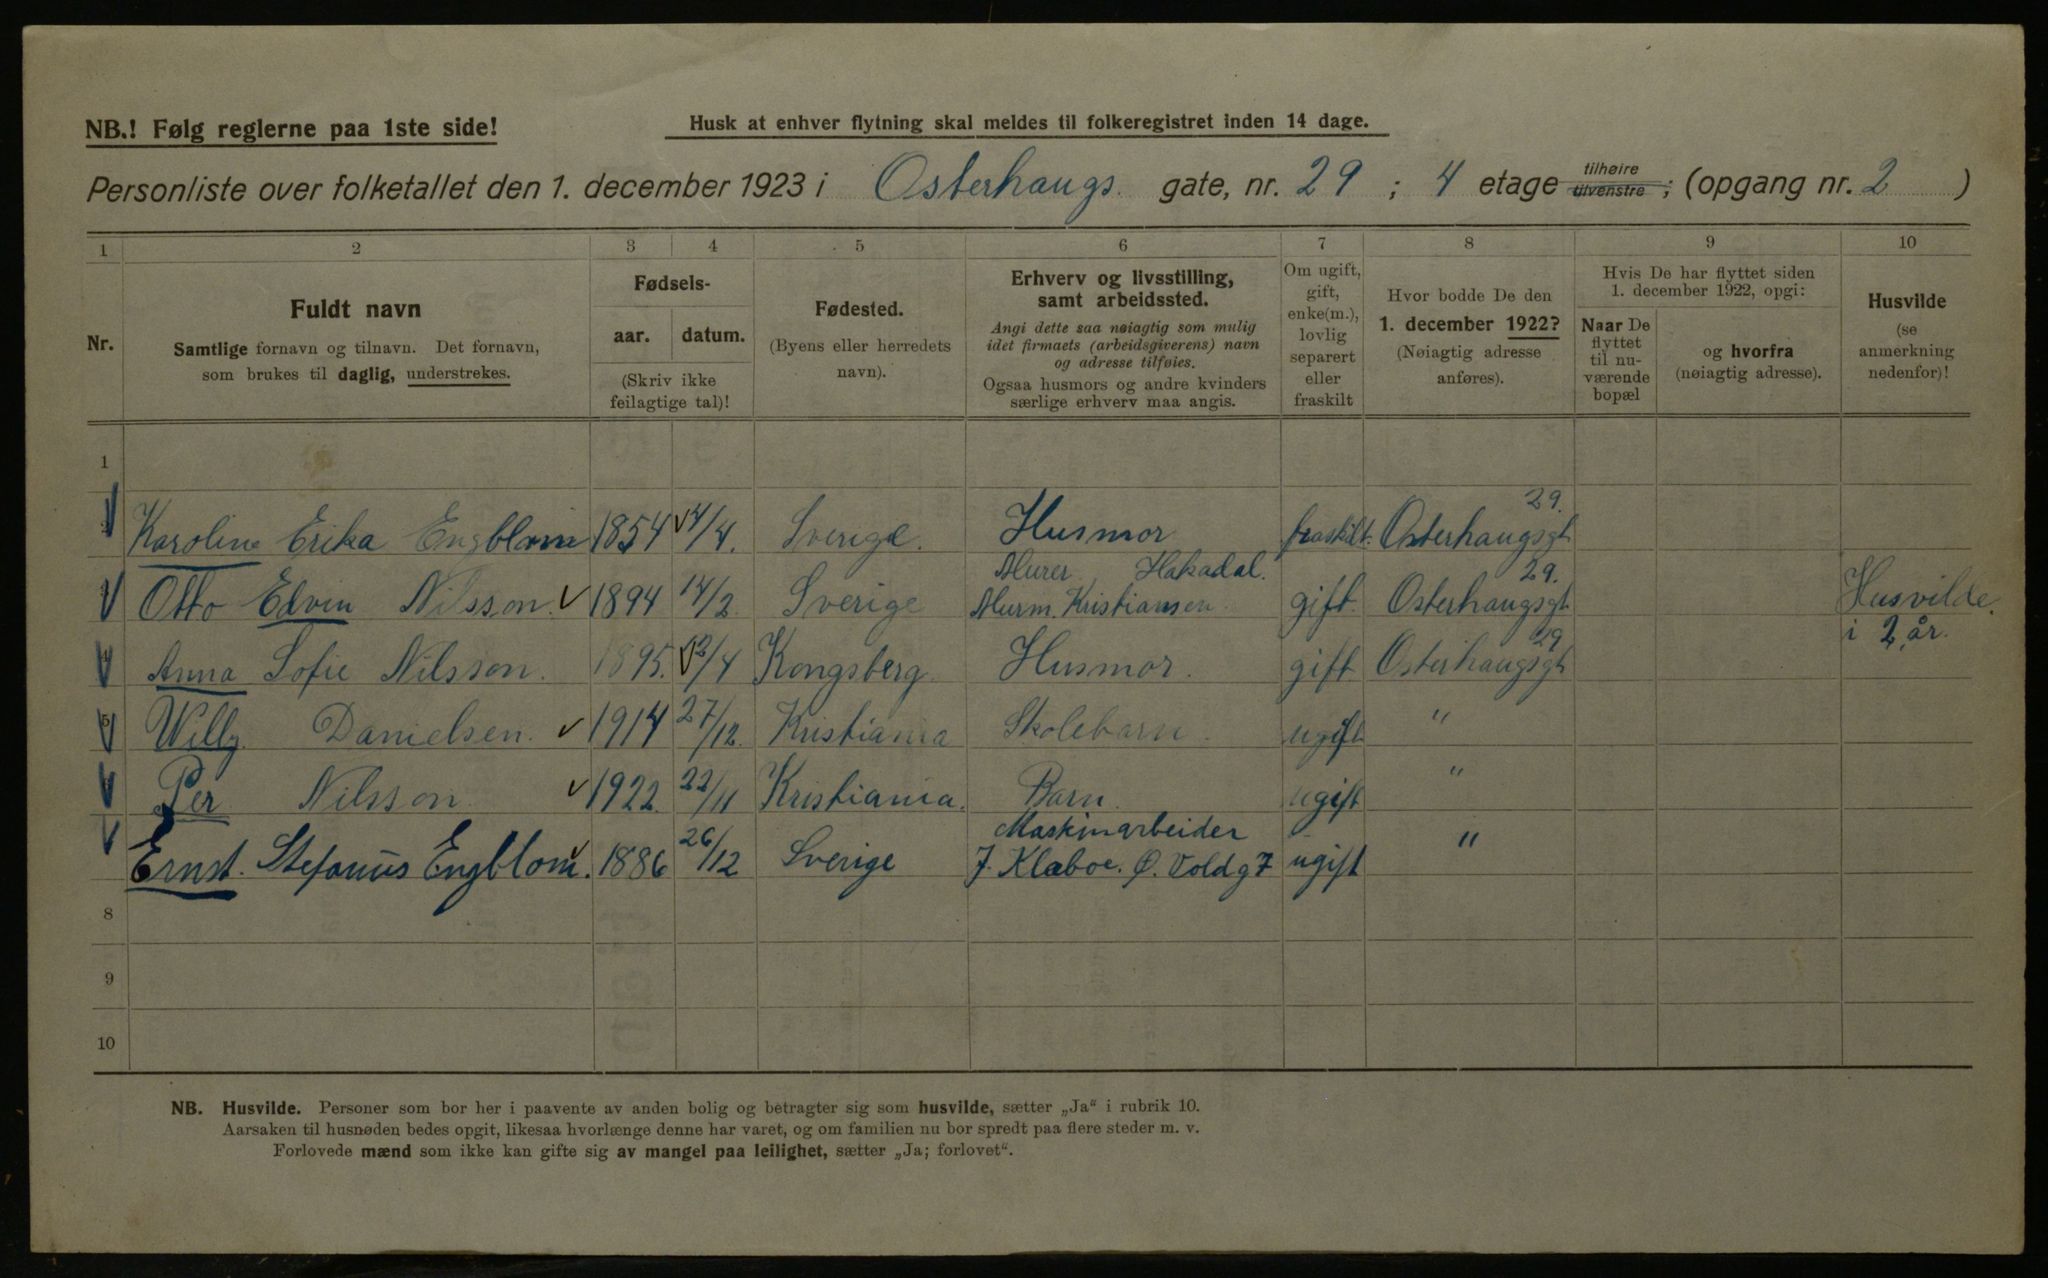 NB.! Følg reglerne paa 1ste side!
Husk at enhver flytning skal meldes til folkeregistret inden 14 dage.
Personliste over folketallet den 1. december 1923 i Osterhaugs. gate, nr. 29 ; 4 etage tilhøire tilvenstre ; (opgang nr. 2 )
1 2 3 4 5 6 7 8 9 10
Nr.
Fuldt navn
Samtlige fornavn og tilnavn. Det fornavn,
som brukes til daglig, understrekes.
Fødsels-
aar. datum.
(Skriv ikke
feilagtige tal)!
Fødested.
(Byens eller herredets
navn).
Erhverv og livsstilling,
samt arbeidssted.
Angi dette saa nøiagtig som mulig
idet firmaets (arbeidsgiverens) navn
og adresse tilføies.
Ogsaa husmors og andre kvinders
særlige erhverv maa angis.
Om ugift,
gift,
enke(m.),
lovlig
separert
eller
fraskilt
Hvor bodde De den
1. december 1922?
(Nøiagtig adresse
anføres).
Hvis De har flyttet siden
1. december 1922, opgi:
Naar De
flyttet
til nu-
værende
bopæl
og hvorfra
(nøiagtig adresse).
Husvilde
(se
anmerkning
nedenfor)!
1
29.
Karoline Erika Engblom 1854 /4. Sverige. Husmor fraskilt. Osterhaugsgt
Murer Hakadal. 29.
Otto Edvin Nilsson. 1894 14/2 Sverige Murm. Kristiansen. gift. Osterhaugsgt Husvilde.
29 i 2 år.
Anna Sofie Nilsson. 1895. /4 Kongsberg. Husmor. gift Osterhaugsgt
5 Willy Danielsen. 1914 27/12. Kristiania Skolebarn. ugift "
Per Nilsson. 1922. 22/11 Kristiania. Barn. ugift "
Maskinarbeider
Ernst. Stefanus Engblom. 1886 26/12 Sverige J. Klaboe. Ø. Voldg 7 ugift "
8
9
10
NB. Husvilde. Personer som bor her i paavente av anden bolig og betragter sig som husvilde, sætter „Ja“ i rubrik 10.
Aarsaken til husnøden bedes opgit, likesaa hvorlænge denne har varet, og om familien nu bor spredt paa flere steder m. v.
Forlovede mænd som ikke kan gifte sig av mangel paa leilighet, sætter „Ja; forlovet“.